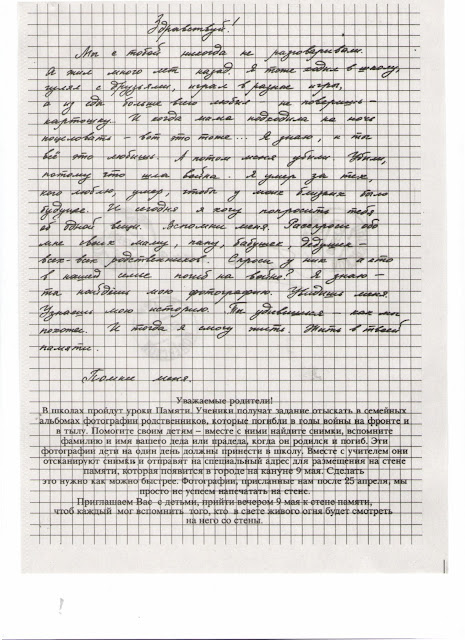 Здравствуй!
Мы с тобой никогда не разговаривали.
Я жил много лет назад. Я тоже ходил в школу,
гулял с друзьями, играл в разные игры,
а из еды больше всего любил не поверишь –
картошку. И когда мама подходила на ночь
поцеловать – вот это тоже... Я знаю, и ты
всё это любишь. А потом меня убили. Убили,
потому что шла война. Я умер за тех,
кого люблю, умер, чтобы у моих близких было
будущее. И сегодня я хочу попросить тебя
об одной вещи. Вспомни меня. Расспроси обо
мне своих маму, папу, бабушек, дедушек –
всех-всех родственников. Спроси у них – а кто
в нашей семье погиб на войне? Я знаю –
ты найдёшь мою фотографию. Увидишь меня.
Узнаешь мою историю. Ты удивишься – как мы
похожи. И тогда я смогу жить. Жить в твоей
памяти.
Помни меня.
Уважаемые родители!
В школах пройдут уроки Памяти. Ученики получат задание отыскать в семейных
альбомах фотографии родственников, которые погибли в годы войны на фронте и
в тылу. Помогите своим детям – вместе с ними найдите снимки, вспомните
фамилию и имя вашего деда или прадеда, когда он родился и погиб. Эти
фотографии дети на один день должны принести в школу. Вместе с учителем они
отсканируют снимки и отправят на специальный адрес для размещения на стене
памяти, которая появится в городе на кануне 9 мая. Сделать
это нужно как можно быстрее. Фотографии, присланные нам после 25 апреля, мы
просто не успеем напечатать на стене.
Приглашаем Вас с детьми, прийти вечером 9 мая к стене памяти,
чтоб каждый мог вспомнить того, кто в свете живого огня будет смотреть
на него со стены.